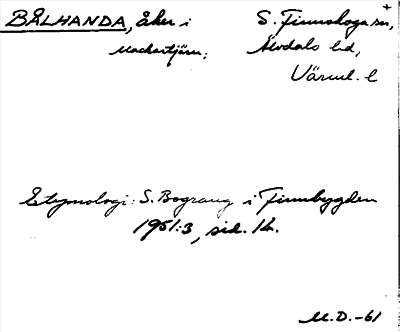 BÅLHANDA, åker i S. Finnskoga sn,
Mackartjärn; Älvdals hd,
Värml. l
Etymologi: S. Bograng i Finnbygden
1951:3, sid. 14.
M.D.-61